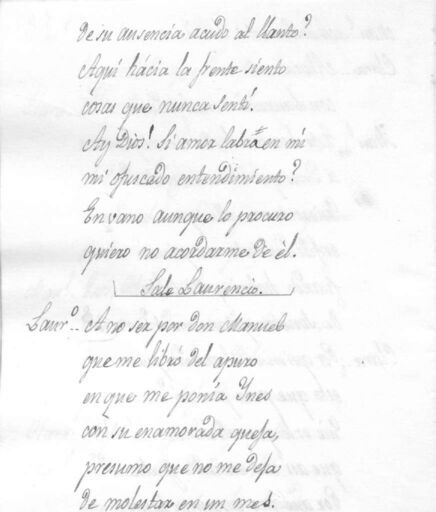 de su ausencia acudo al llanto?
Aquí hácia la frente siento
cosas que nunca sentí.
Ay Dios! Si amor labra en mi
mi ofuscado entendimiento?
En vano aunque lo procuro
quiero no acordarme de él.
Sale Laurencio.
Laur.º.. A no ser por don Manuel
que me libró del apuro
en que me ponía Ynes
con su enamorada quefa,
presumo que no me defa
de molestar en un mes.